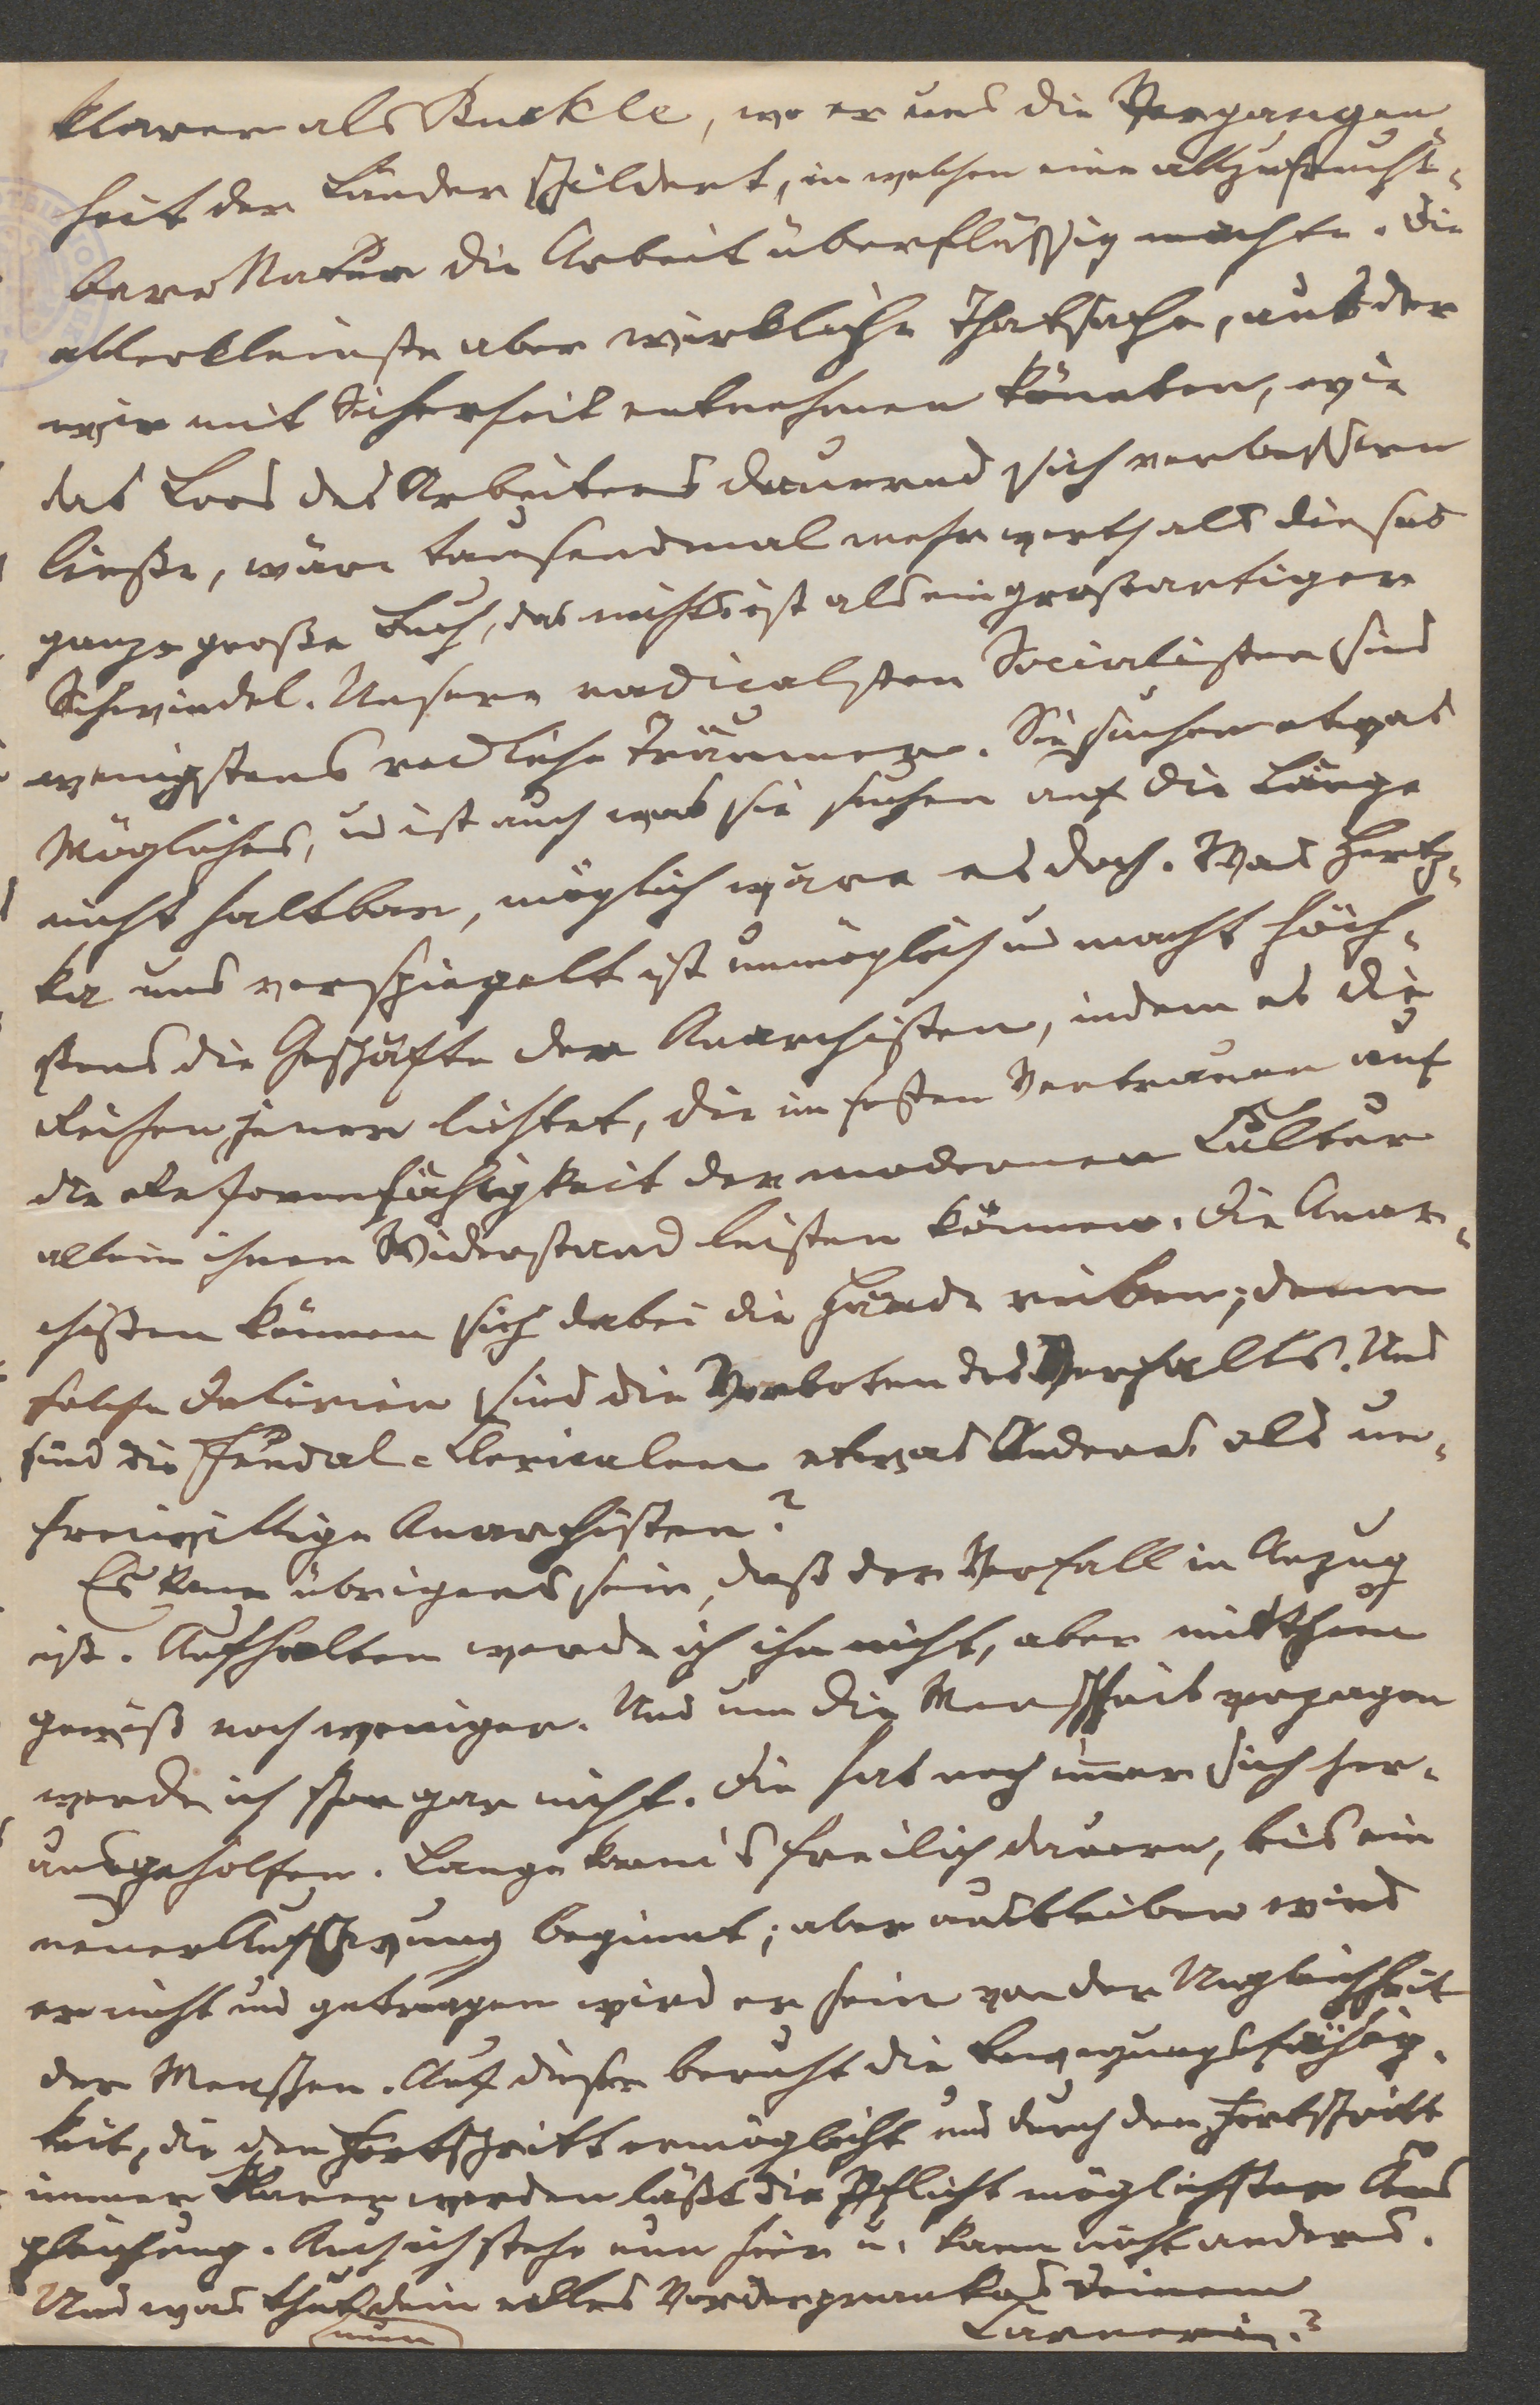 klarer als Buckle, wo er uns die Vergangen-
heit der Länder schildert, in welchen eine allzufrucht-
bare Natur die Arbeit überflüssig machte. Die
allerkleinste aber wirkliche Thatsache, aus der
wir mit Sicherheit entnehmen könnten, wie
das Loos des Arbeiters dauernd sich verbessern
ließe, wäre tausendmal mehr werth als dieses
ganze große Buch, das nichts ist als ein großartiger
Schwindel. Unsere radicalsten Socialisten sind
wenigstens redliche Träumer. Sie suchen etwas
Mögliches, u ist auch was sie suchen auf die Länge
nicht haltbar, möglich wäre es doch. Was Hertz-
ka uns vorspiegelt ist unmöglich und macht höch-
stens die Geschäfte der Anarchisten, indem es die
Reihen jener lichtet, die im festen Vertrauen auf
die Reformfähigkeit der modernen Cultur
allein ihnen Widerstand leisten können. Die Anar-
chisten können sich dabei die Hände reiben; denn
solche Delirien sind die Vorboten des Verfalls. Und
sind die Feudal-Clericalen etwas Anderes als un-
freiwillige Anarchisten?
Es kann übrigens sein, daß der Verfall in Anzug
ist. Aufhalten werde ich ihn nicht, aber mitthun
gewiß noch weniger. Und um die Menschheit verzagen
werde ich schon gar nicht. Die hat noch immer sich her-
ausgeholfen. Lange kann's freilich dauern, bis ein
neuer Aufschwung beginnt; aber ausbleiben wird
er nicht und getragen wird er sein von der Ungleichheit
der Menschen. Auf dieser beruht die Bewegungsfähig-
keit, die den Fortschritt ermöglicht und durch den Fortschritt
immer klarer werden läßt die Pflicht möglichster Aus
gleichung. Auch ich stehe nun hier u. kann nicht anders.
Und was thut dein edles Vorderprankas Deinem
nun Carneri?